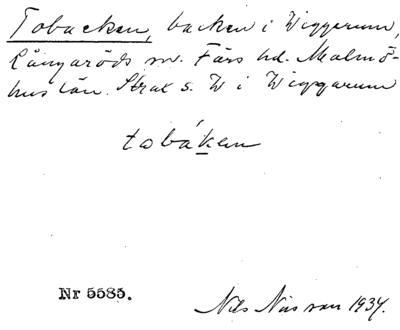 Tobacken, backen i Wiggarum,
Långaröds sn. Färs hd. Malmö-
hus län. Strax s. W i Wiggarum
tobáken
Nr 5585.
Nils Nilsson 1934.